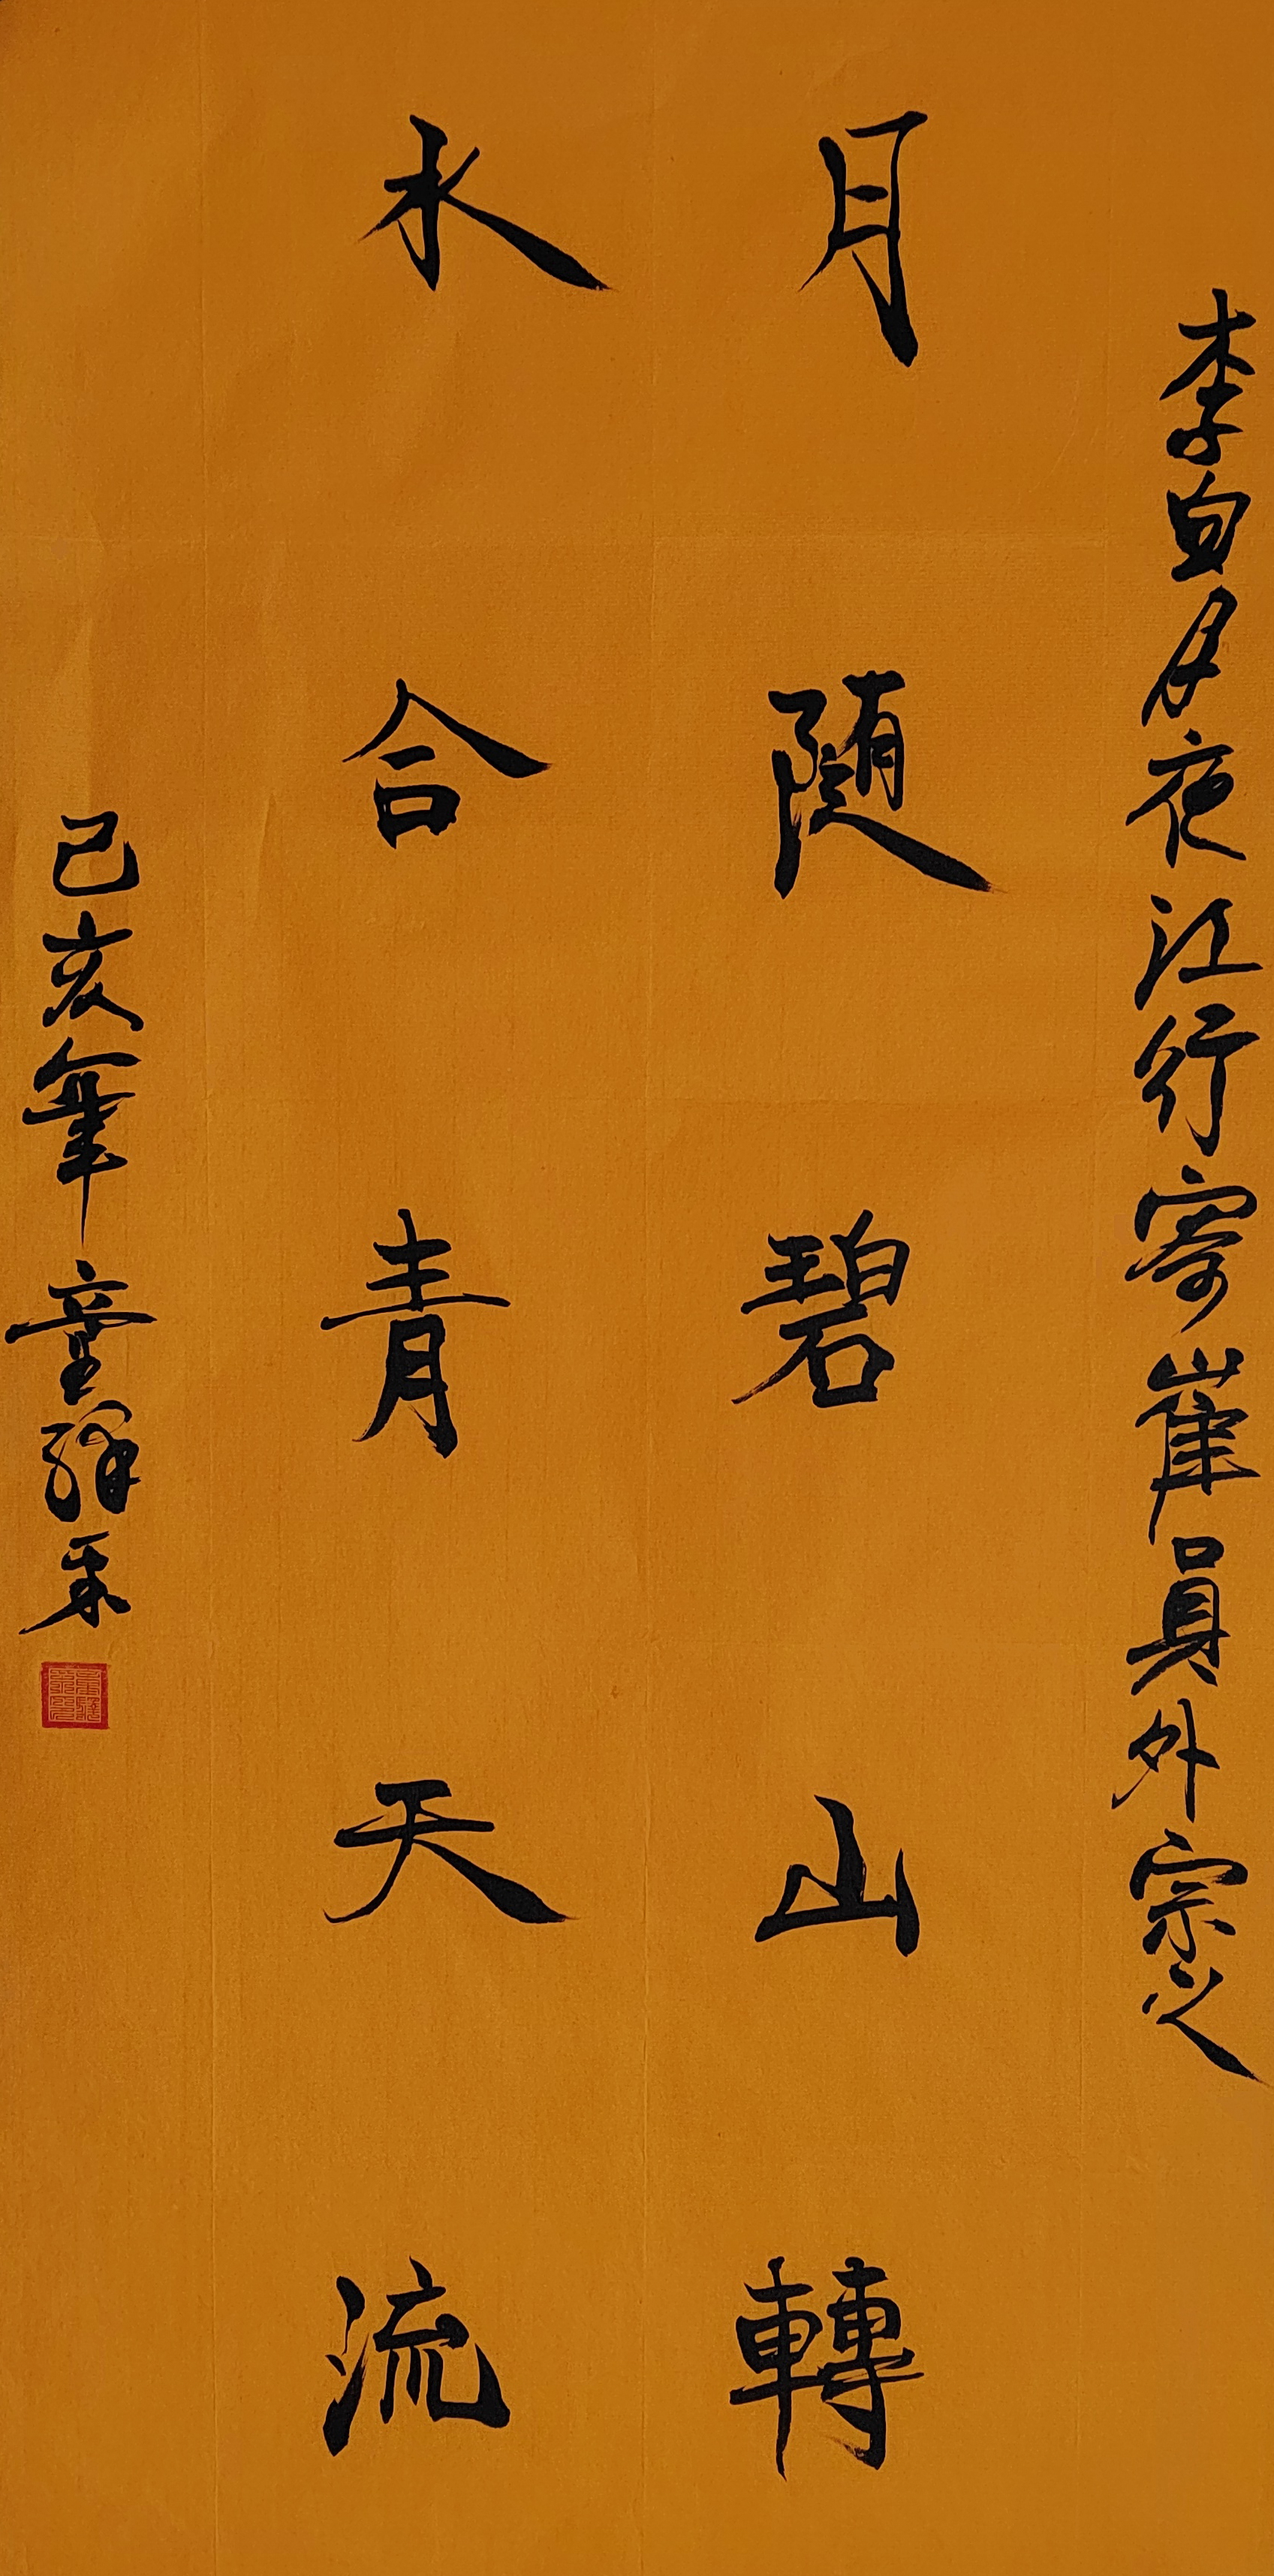 李白月夜江行寄崔員外宗之
月随碧山轉
水合青天流
己亥年童